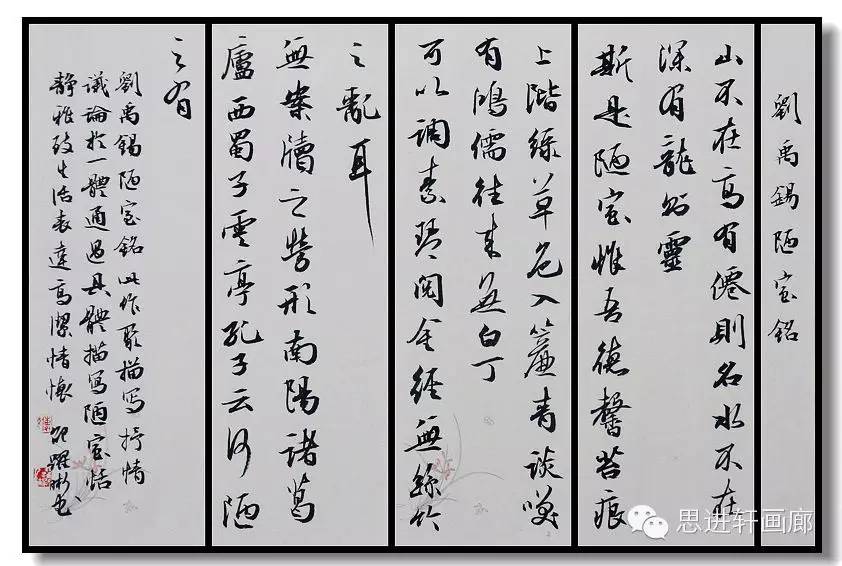 劉禹錫陋室銘
山不在高有僊則名水不在
深有龍則靈
斯是陋室惟吾德馨苔痕
上階綠草色入簾青談咲
有鴻儒往來無白丁
可以調素琴閱金經無絲竹
之亂耳
無案牘之勞形南陽諸葛
廬西蜀子雲亭孔子云何陋
之有
劉禹錫陋室銘此作聚描寫抒情
議論於一體通過具體描寫陋室恬
靜雅致生活表達高潔情懷 躍彬書
思进轩画廊